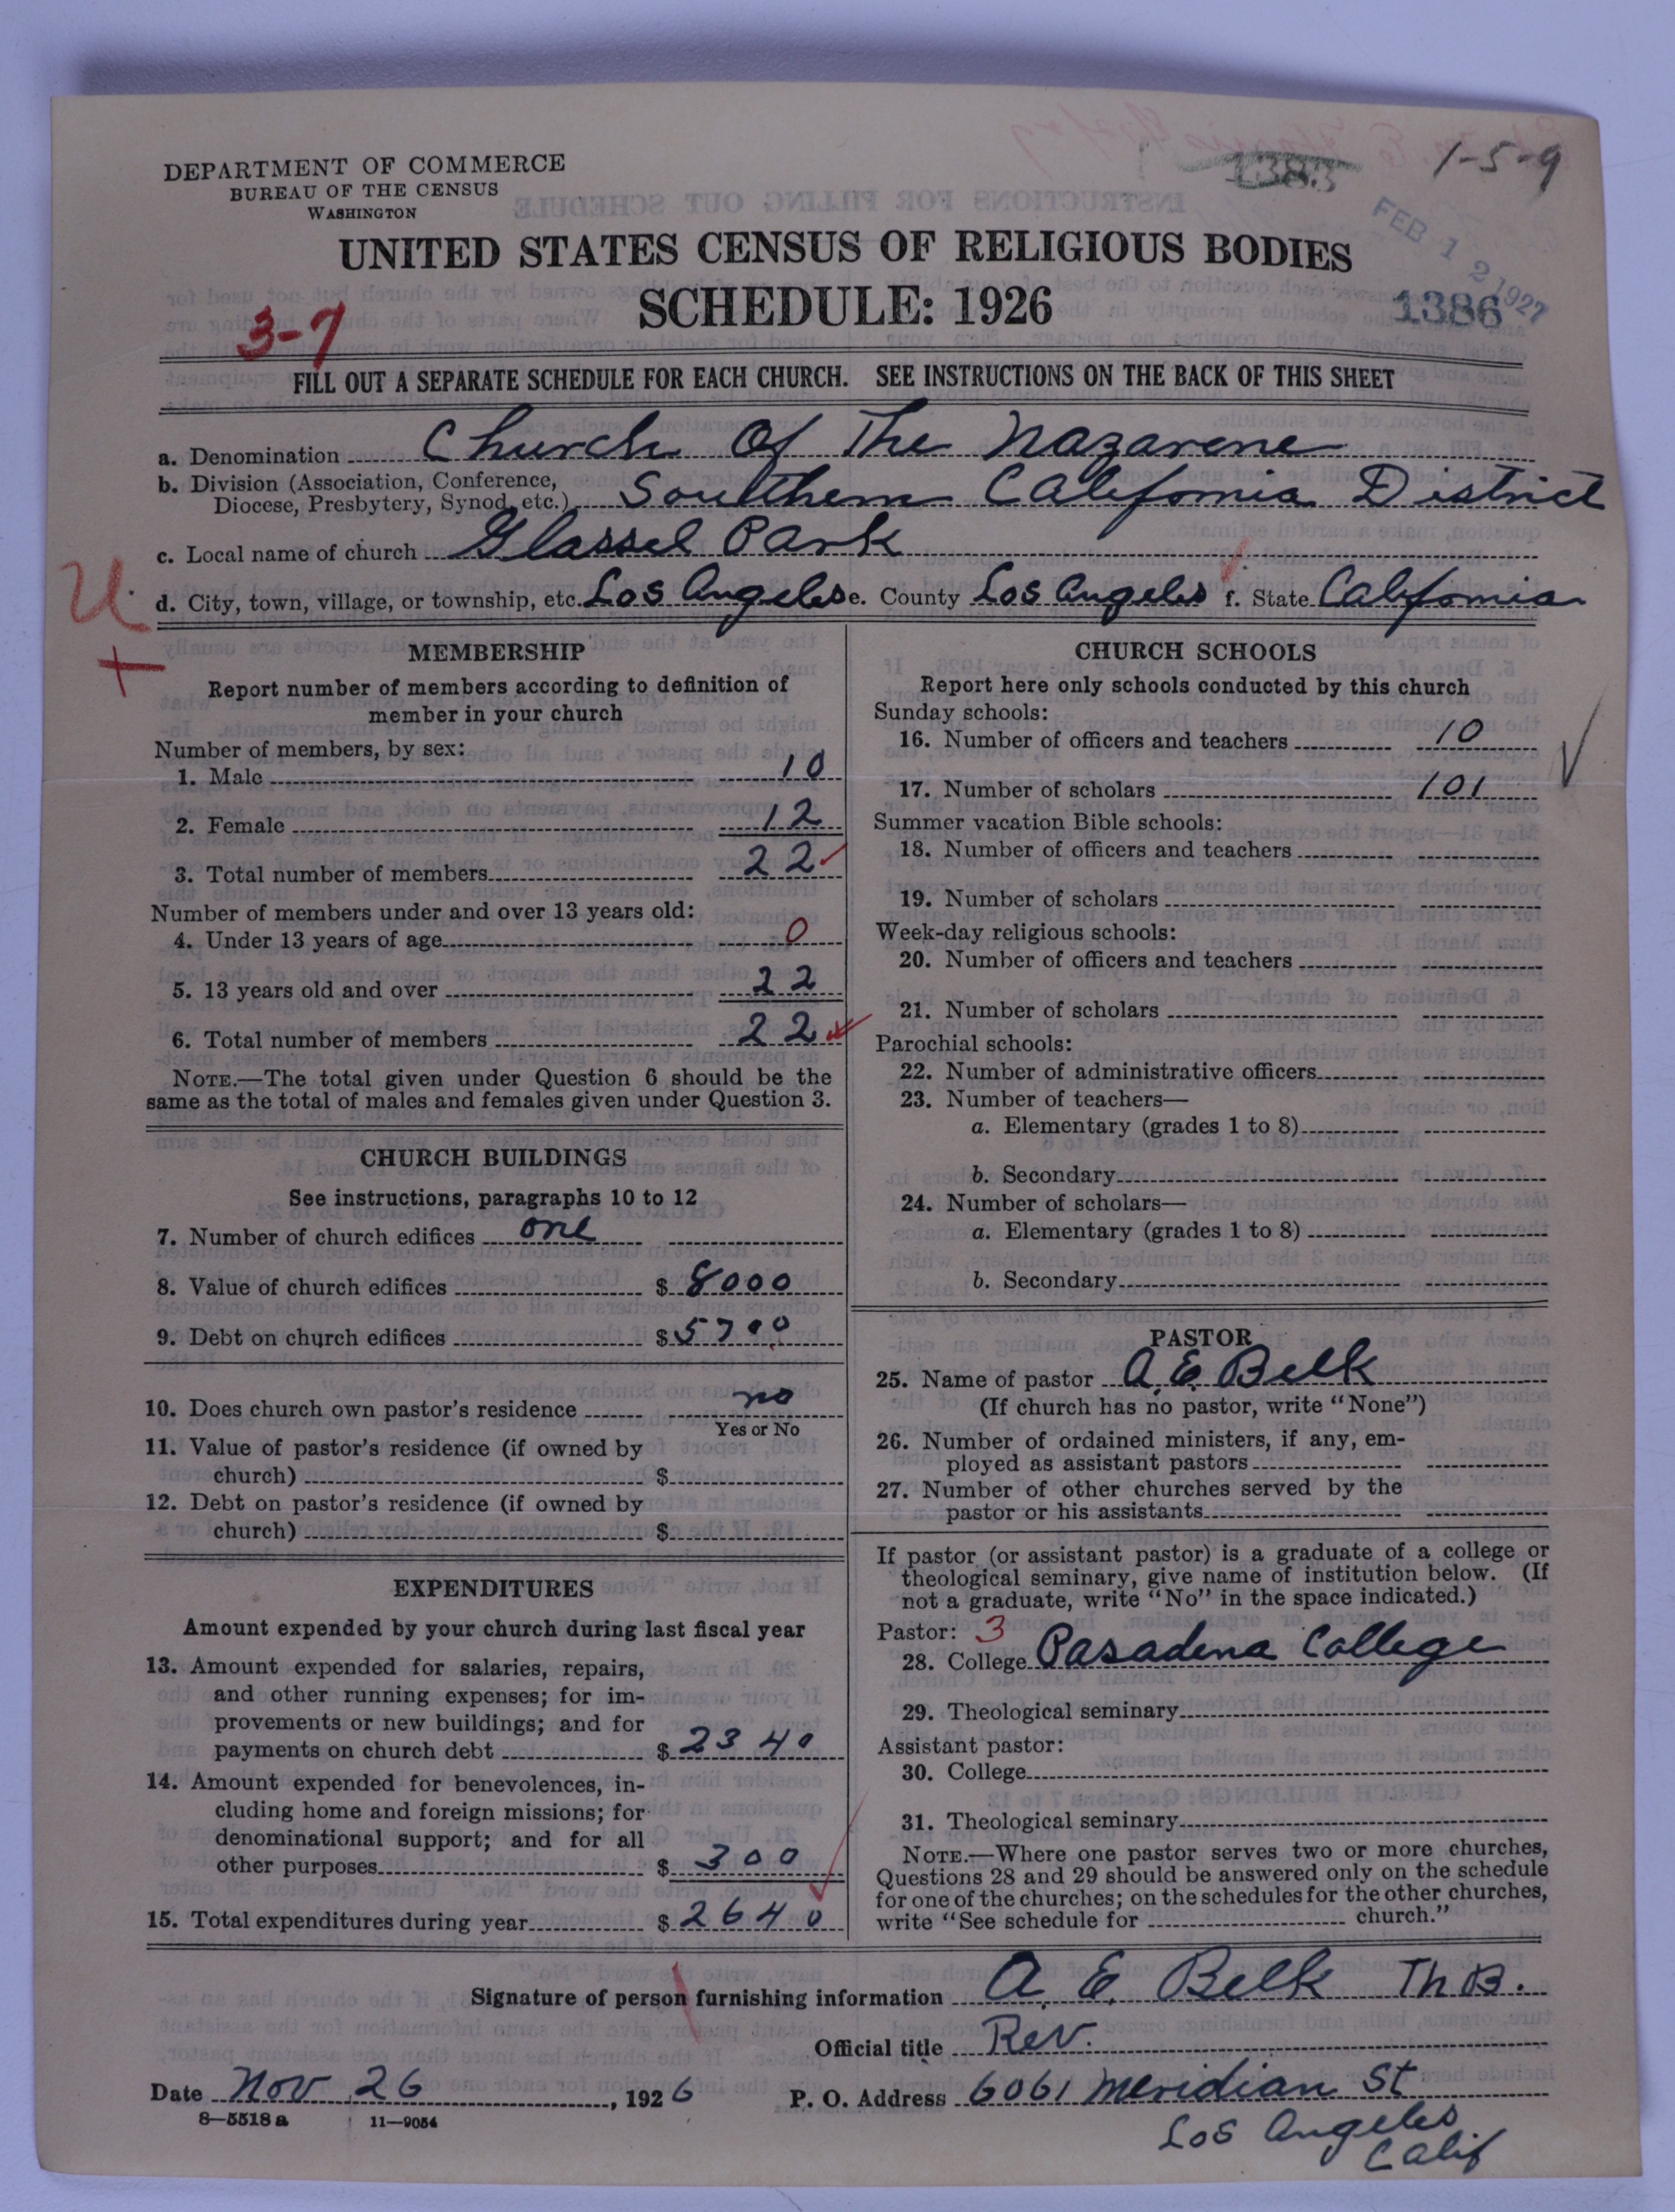 1383
1-5-9
DEPARTMENT OF COMMERCE
BUREAU OF THE CENSUS
WASHINGTON
FEB 12 1927
UNITED STATES CENSUS OF RELIGIOUS BODIES
SCHEDULE: 1926
1386
3-7
FILL OUT A SEPARATE SCHEDULE FOR EACH CHURCH. SEE INSTRUCTIONS ON THE BACK OF THIS SHEET
a. Denomination Church Of The Nazarene
b. Division (Association, Conference,
Diocese, Presbytery, Synod, etc.) Southern California District
c. Local name of church Glassel Park
d. City, town, village, or township, etc. Los Angeles e. County Los Angeles f. State California
U
+
MEMBERSHIP
Report number of members according to definition of
member in your church
Number of members, by sex:
1. Male 10
2. Female 12
3. Total number of members 22
Number of members under and over 13 years old:
4. Under 13 years of age 0
5. 13 years old and over 22
6. Total number of members 22
NOTE.—The total given under Question 6 should be the
same as the total of males and females given under Question 3.
CHURCH BUILDINGS
See instructions, paragraphs 10 to 12
7. Number of church edifices one
8. Value of church edifices $ 8000
9. Debt on church edifices $ 5700
10. Does church own pastor's residence no
Yes or No
11. Value of pastor's residence (if owned by
church) $
12. Debt on pastor's residence (if owned by
church) $
EXPENDITURES
Amount expended by your church during last fiscal year
13. Amount expended for salaries, repairs,
and other running expenses; for im-
provements or new buildings; and for
payments on church debt $ 2340
14. Amount expended for benevolences, in-
cluding home and foreign missions; for
denominational support; and for all
other purposes $ 300
15. Total expenditures during year $ 2640
CHURCH SCHOOLS
Report here only schools conducted by this church
Sunday schools:
16. Number of officers and teachers 10
17. Number of scholars 101
Summer vacation Bible schools:
18. Number of officers and teachers
19. Number of scholars
Week-day religious schools:
20. Number of officers and teachers
21. Number of scholars
Parochial schools:
22. Number of administrative officers
23. Number of teachers—
a. Elementary (grades 1 to 8)
b. Secondary
24. Number of scholars—
a. Elementary (grades 1 to 8)
b. Secondary
PASTOR
25. Name of pastor A. E. Belk
(If church has no pastor, write "None")
26. Number of ordained ministers, if any, em-
ployed as assistant pastors
27. Number of other churches served by the
pastor or his assistants
If pastor (or assistant pastor) is a graduate of a college or
theological seminary, give name of institution below. (If
not a graduate, write "No" in the space indicated.)
Pastor: 3
28. College Pasadena College
29. Theological seminary
Assistant pastor:
30. College
31. Theological seminary
NOTE.—Where one pastor serves two or more churches,
Questions 28 and 29 should be answered only on the schedule
for one of the churches; on the schedules for the other churches,
write "See schedule for church."
Signature of person furnishing information A. E. Belk Th.B.
Official title Rev.
Date Nov 26, 1926 P. O. Address 6061 Meridian St
8—5518a 11—9054
Los Angeles
Calif